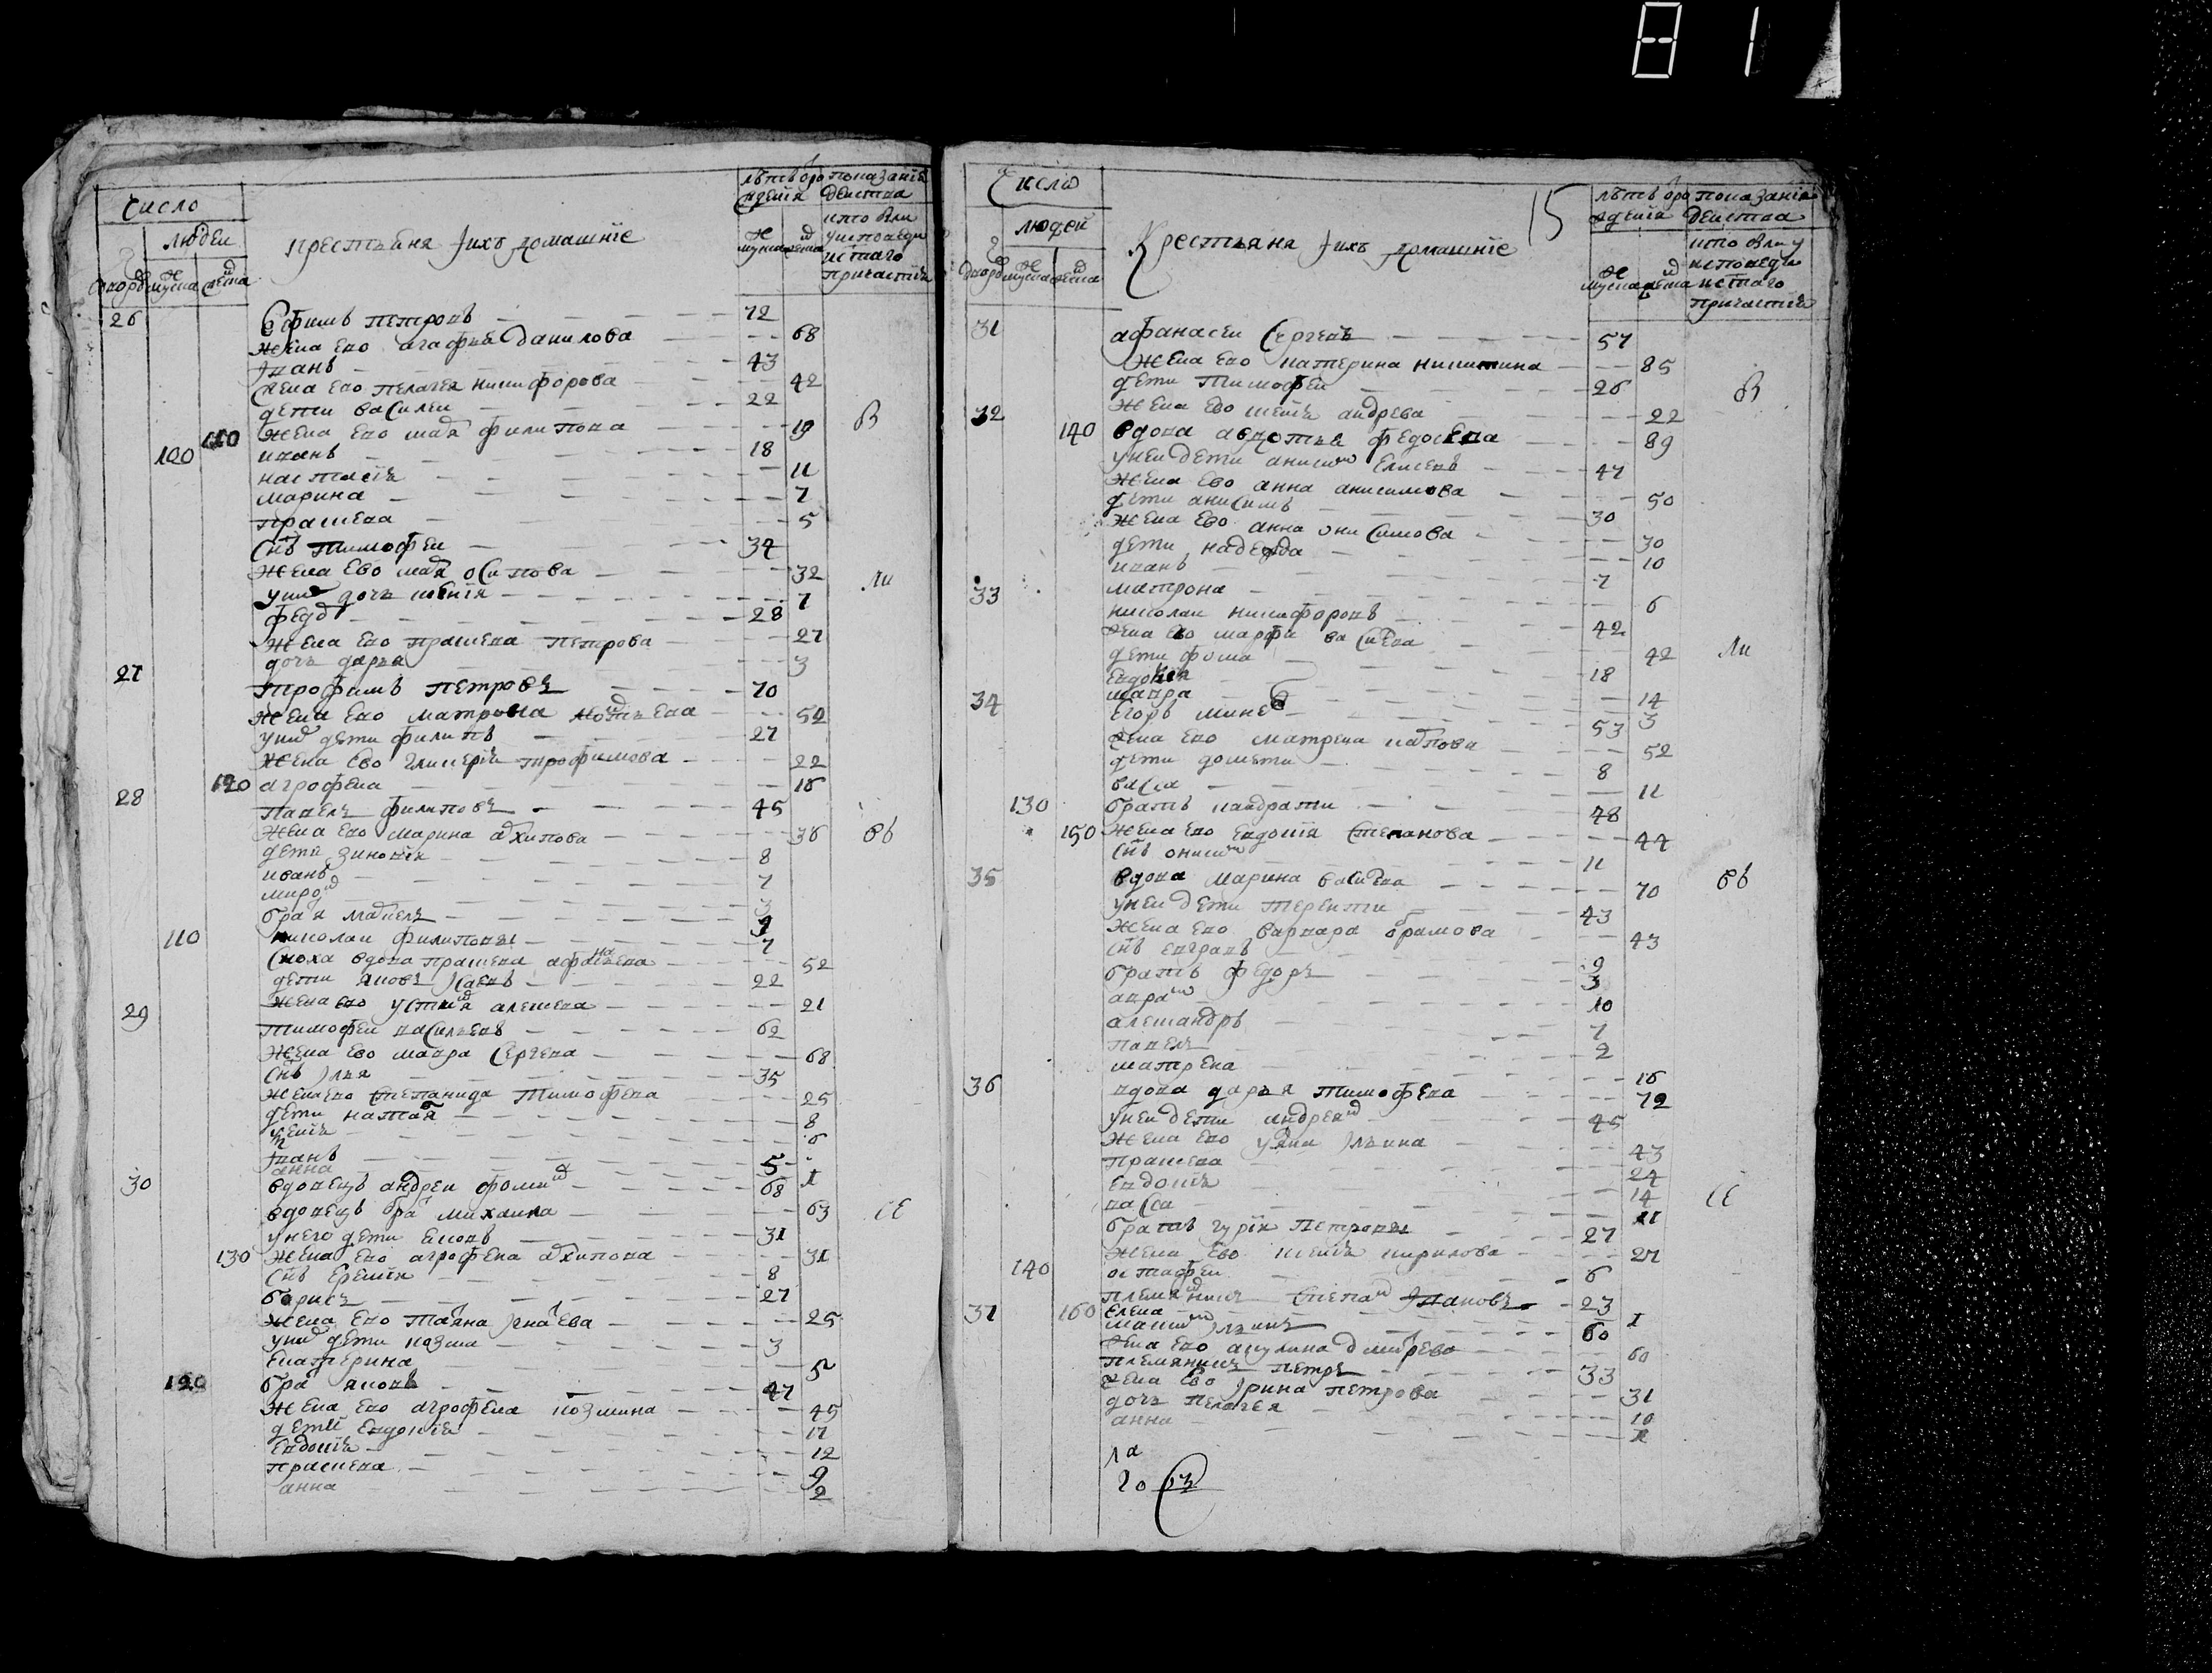 81
число
людеи
дворовъ мужеска женска
крестьяня Iихъ домашние
лѣтъ от рождения
мужеска женска
показание действа
кто были у исповеди и святаго причастия
26 Ефимъ петровъ 72
жена ево агафья данилова 68
Iванъ 43
жена ево пелагея никифорова 42
дети василеи 22
110 жена ево маря филипова 19 В
100 иванъ 18
настасия 11
марина 7
прасковя 5
снъ тимофеи 34
жена ево маря осипова 32 ли
у них дочь 7
федор 28
жена ево прасковя петрова 27
дочь дарья 3
27 трофимъ петровъ 70
жена ево матрона 52
у них дети филипъ 27
жена ево гликерия трофимова 22
120 агрофена 16
28 павелъ филиповъ 45
жена ево марина архипова 36 въ
дети зиновия 8
иванъ 7
мирон 3
братя
110 николаи филиповы 7
сноха вдова прасковя афанасева 52
дети яковъ Iсаевъ 22
жена ево устиня алексева 21
29 тимофеи васильевъ 62
жена ево мавра сергева 68
снъ Iлья 35
жена ево степанида тимофева 25
дети наталя 8
6
Iванъ 5
анна 1
30 вдовецъ андреи фомин 68
вдовецъ брат михаила 63 се
у него дети яковъ 31
130 жена ево агрофена архипова 31
снъ еремия 8
борисъ 27
жена ево татяна Iгнатева 25
у них дети козма 3
екатерина 5
120 брат яковъ 47
жена ево агрофена козмина 45
дети евдокия 17
евдокия 12
прасковя 9
анна 2
15
Число
людей
дворовъ мужеска женска
Крестьяня Iихъ домашние
лѣтъ от рождения
мужеска женска
показания действа
кто были у исповеди и святаго причастия
31 афанасеи Сергевъ 57
жена ево катерина никитина 85
дети тимофеи 26 В
32 жена ево андрева 22
140 вдова авдотья федосева 89
у неи дети анисим Елисевъ 47
жена ево анна анисимова 50
дети анисимъ 30
жена ево анна онисимова 30
дети надежда 10
иванъ 7
матрона 6
33 николаи никифоровъ 42
жена ево марфа васильева 42 ли
дети фома 18
евдокия 14
мавра 3
34 Егоръ 53
жена ево матрена карпова 52
дети дометии 8
васса 11
130 братъ кандрати 48
150 жена ево евдокия степанова 44
снъ онисим 11
35 вдова марина васильева 70 въ
у неи дети терентии 43
жена ево варвара абрамова 43
снъ евграфъ 9
братъ федоръ 3
аврам 10
алешандръ 7
павелъ 2
матрена 16
36 вдова дарья тимофева 72
у неи дети андреян 45
жена ево Iльина 43
прасковя 24
евдокия 14
васса 11 се
братъ гурия петровы 27
жена ево кирилова 27
140 остафеи 6
племянникъ степан Iвановъ 23
160 елена 1
37 максим Iльинъ 60
жена ево акулина дмитрева 60
племяникъ петръ 33
жена ево Iрина петрова 31
дочь пелагея 10
анна 1